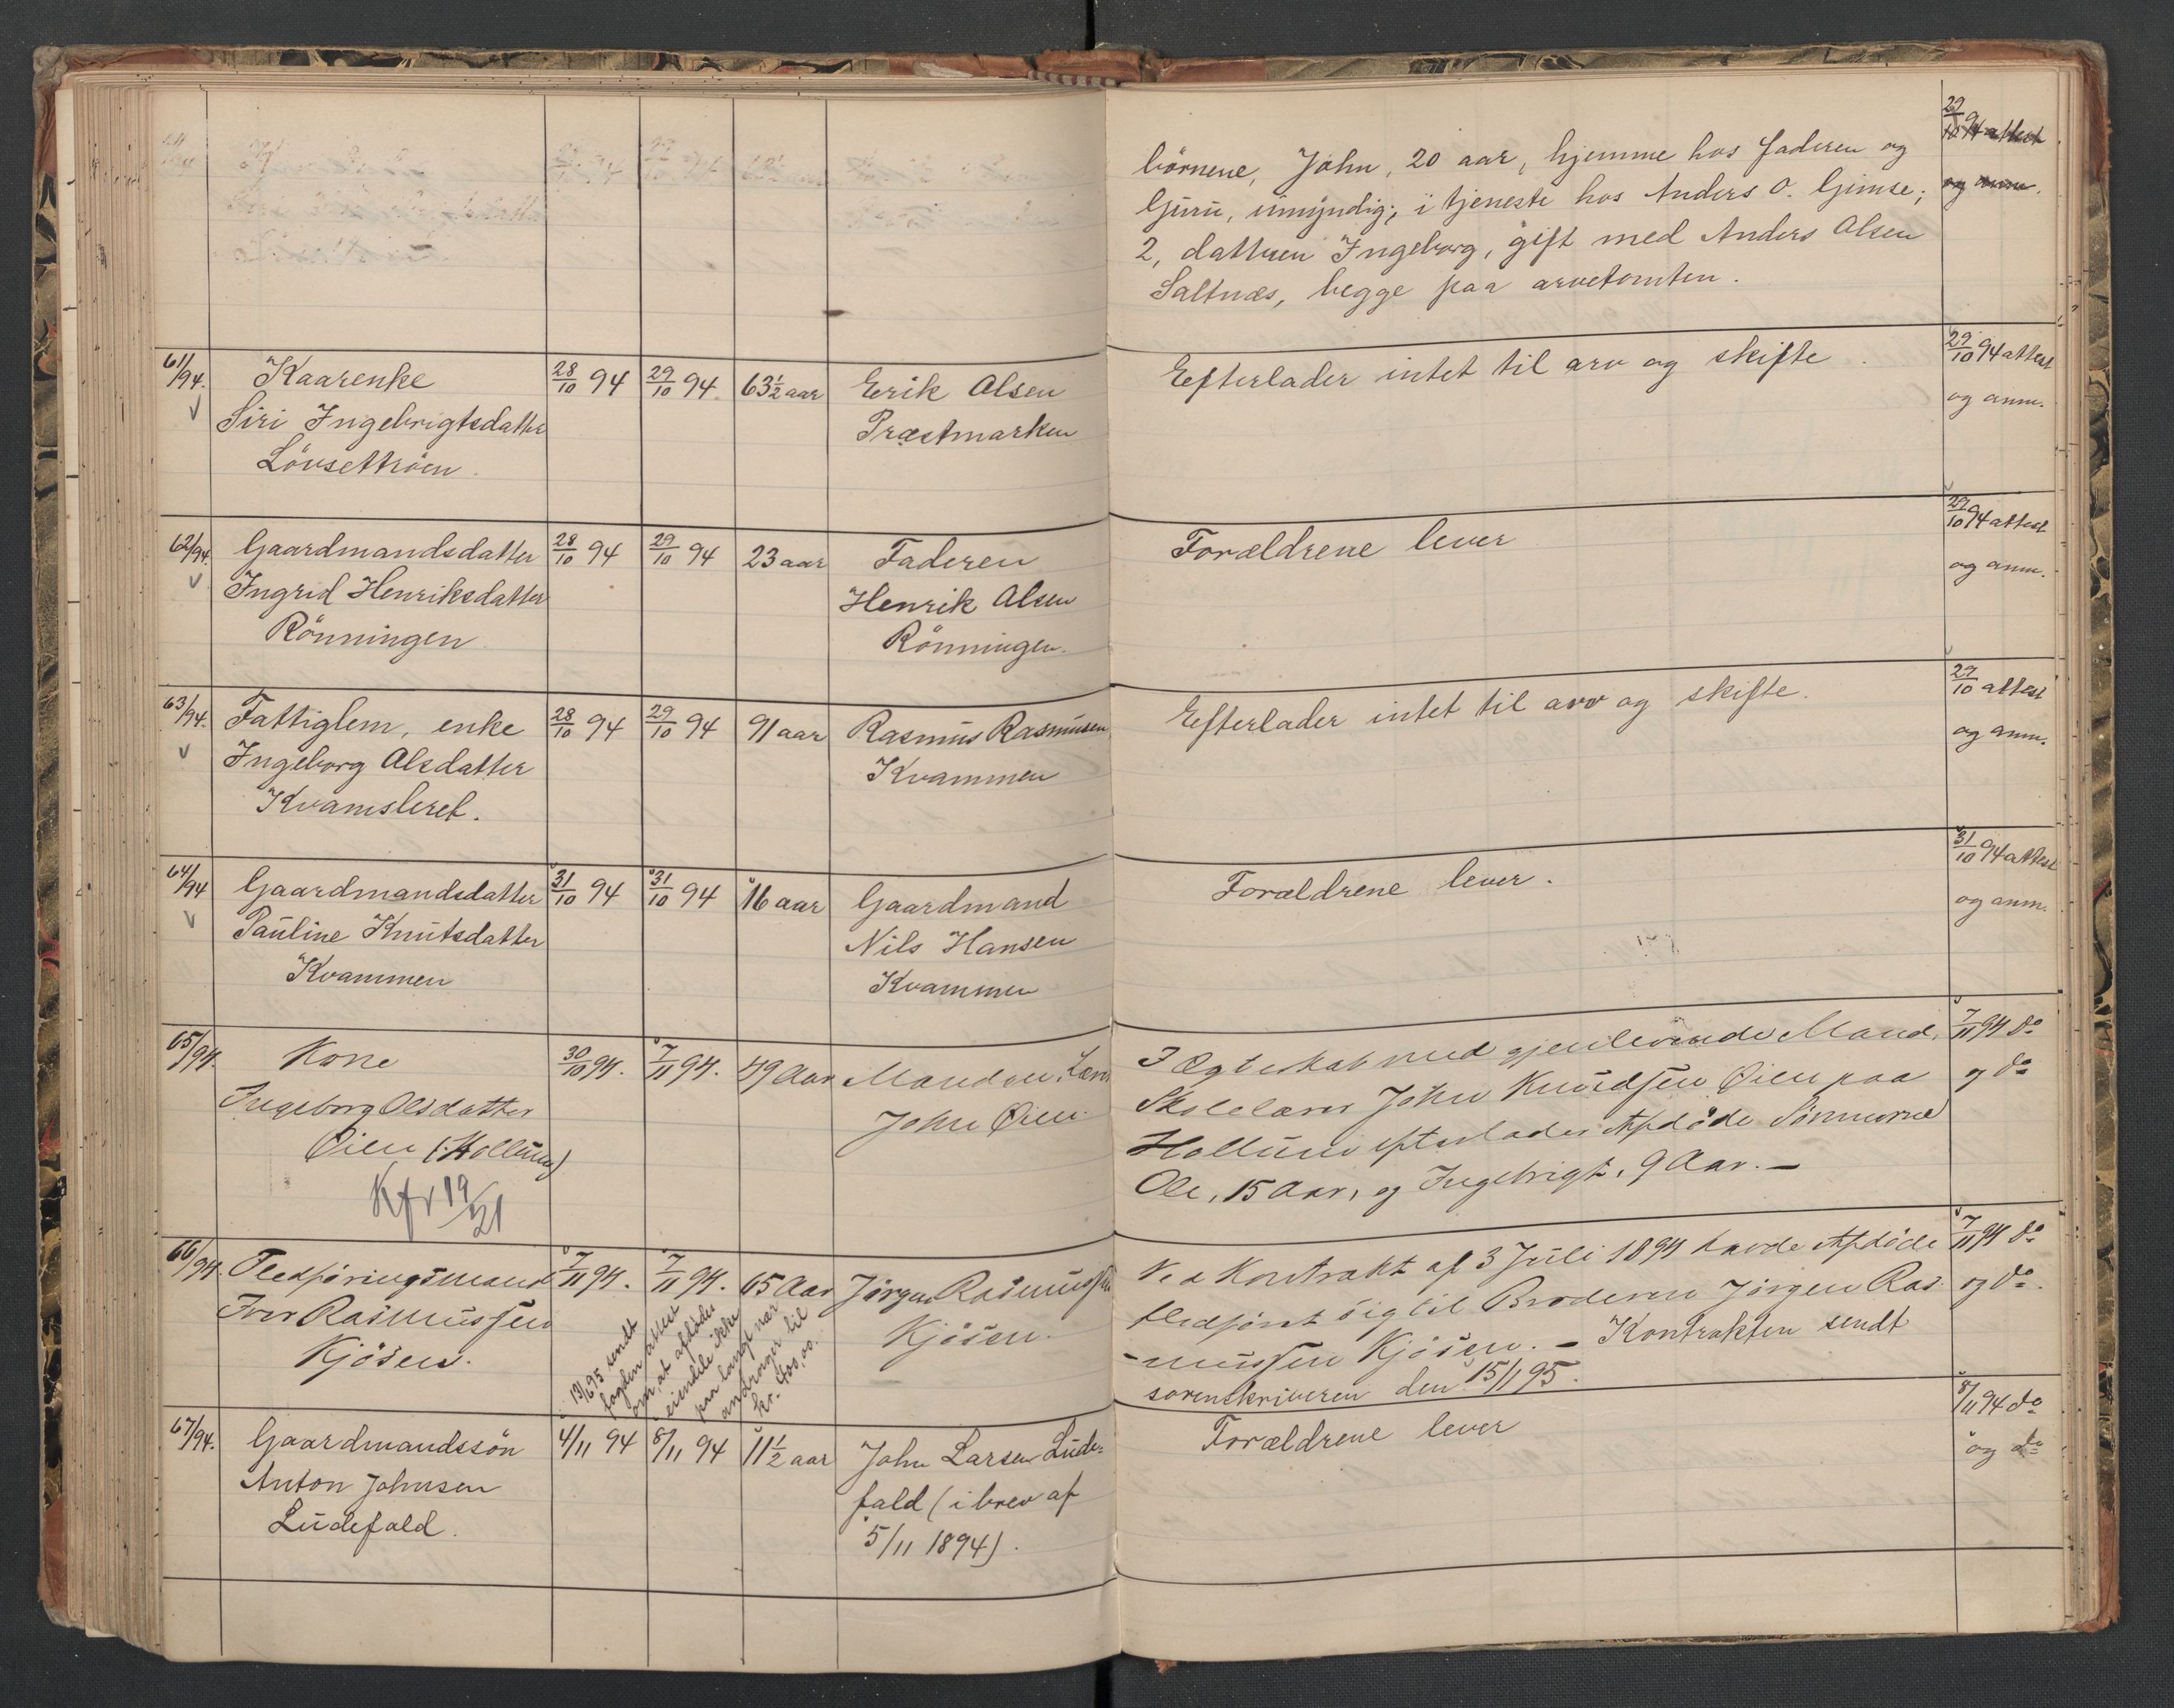 börnene, John, 20 aar, hjemme hos faderen og
Guru, umyndig; i tjeneste hos Anders O. Gimse;
2, datteren Ingeborg, gift med Anders Olsen
Saltnæs, begge paa arvetomten.
29/10 94 attest
og anm.
61/94. Kaarenke 28/10 94 29/10 94 63 1/2 aar Erik Olsen Efterlader intet til arv og skifte. 29/10 94 attest
Siri Ingebrigtsdatter Præstmarken og anm.
Lövsettröen.
62/94. Gaardmandsdatter 28/10 94 29/10 94 23 aar Faderen Forældrene lever 29/10 94 attest
Ingrid Henriksdatter Henrik Olsen og anm.
Rönningen Rönningen.
63/94. Fattiglem, enke 28/10 94 29/10 94 91 aar Rasmus Rasmusen Efterlader intet til arv og skifte. 29/10 attest
Ingeborg Olsdatter Kvammen og anm.
Kvamsleret.
64/94 Gaardmandsdatter 31/10 94 31/10 94 16 aar Gaardmand Forældrene lever. 31/10 94 attest
Pauline Knutsdatter Nils Hansen og anm.
Kvammen Kvammen
65/94. Kone 30/10 94. 7/11 94. 49 Aar Manden, Lærer I Ægteskab med gjenlevende Mand, 7/11 94 do
Ingeborg Olsdatter John Øien. Skolelærer John Knudsen Øien paa og do
Øien (:Hollum) Hollum efterlader Afdöde Sönnerne
Kfr 19/21 Ole, 15 Aar, og Ingebrigt, 9 Aar. —
66/94. Fledföringsmand 7/11 94. 7/11 94. 65 Aar Jörgen Rasmussen Ved Kontrakt af 3 Juli 1894 havde Afdöde 7/11 94 do
Iver Rasmussen Kjösen. fledfört sig til Broderen Jörgen Ras- og do.
Kjösen. mussen Kjösen. — Kontrakten sendt
sorenskriveren den 15/1 95.
13/6 95 sendt
fogden attest
om, at afdödes
eiendele ikke
paa langt nær
andrager til
kr. 400,00.
67/94. Gaardmandssön 4/11 94 8/11 94 11 1/2 aar John Larsen Lude- Forældrene lever 8/11 94 do
Anton Johnsen fald (i brev af og do
Ludefald. 5/11 1894).